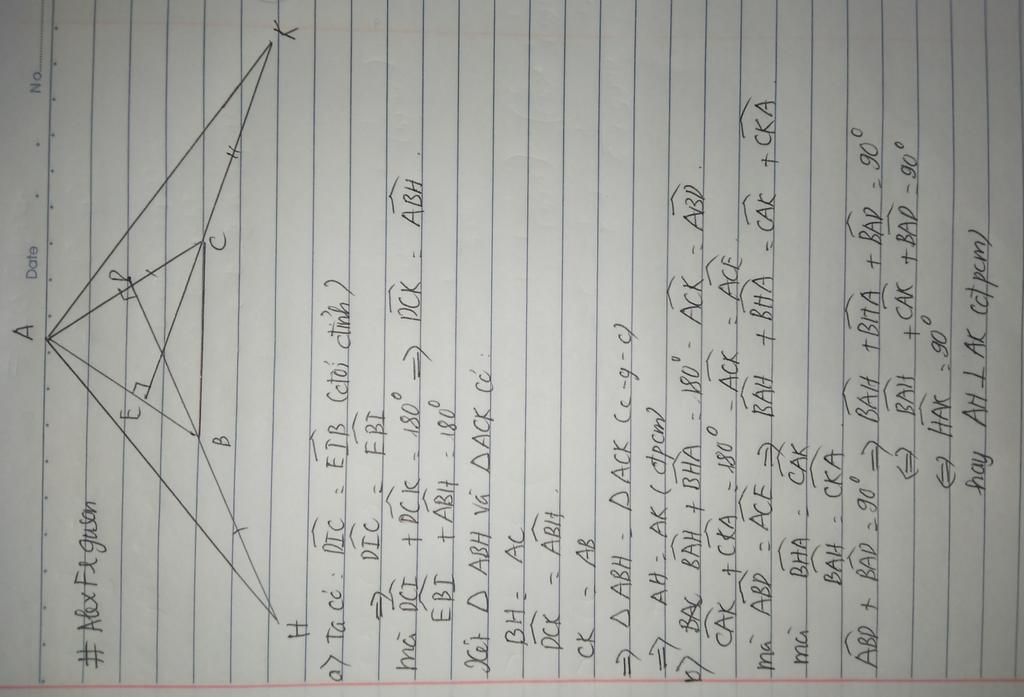 No.
Date
# Alex Ferguson
A
E
D
B
C
H
K
a) Ta có: DIC = EIB (đối đỉnh)
=> DIC = EBI
mà DCI + DCK = 180° => DCK = ABH
EBI + ABH = 180°
Xét Δ ABH và Δ ACK có:
BH = AC
DCK = ABH
CK = AB
=> Δ ABH = Δ ACK (c-g-c)
=> AH = AK (đpcm)
b) BAC BAH + BHA = 180° - ACK = ABD
CAK + CKA = 180° - ACK = ACE
mà ABD = ACE => BAH + BHA = CAK + CKA
mà BHA = CAK
BAH = CKA
ABD + BAD = 90° => BAH + BHA + BAD = 90°
<=> BAH + CAK + BAD = 90°
<=> HAK = 90°
hay AH ⊥ AK (đpcm)